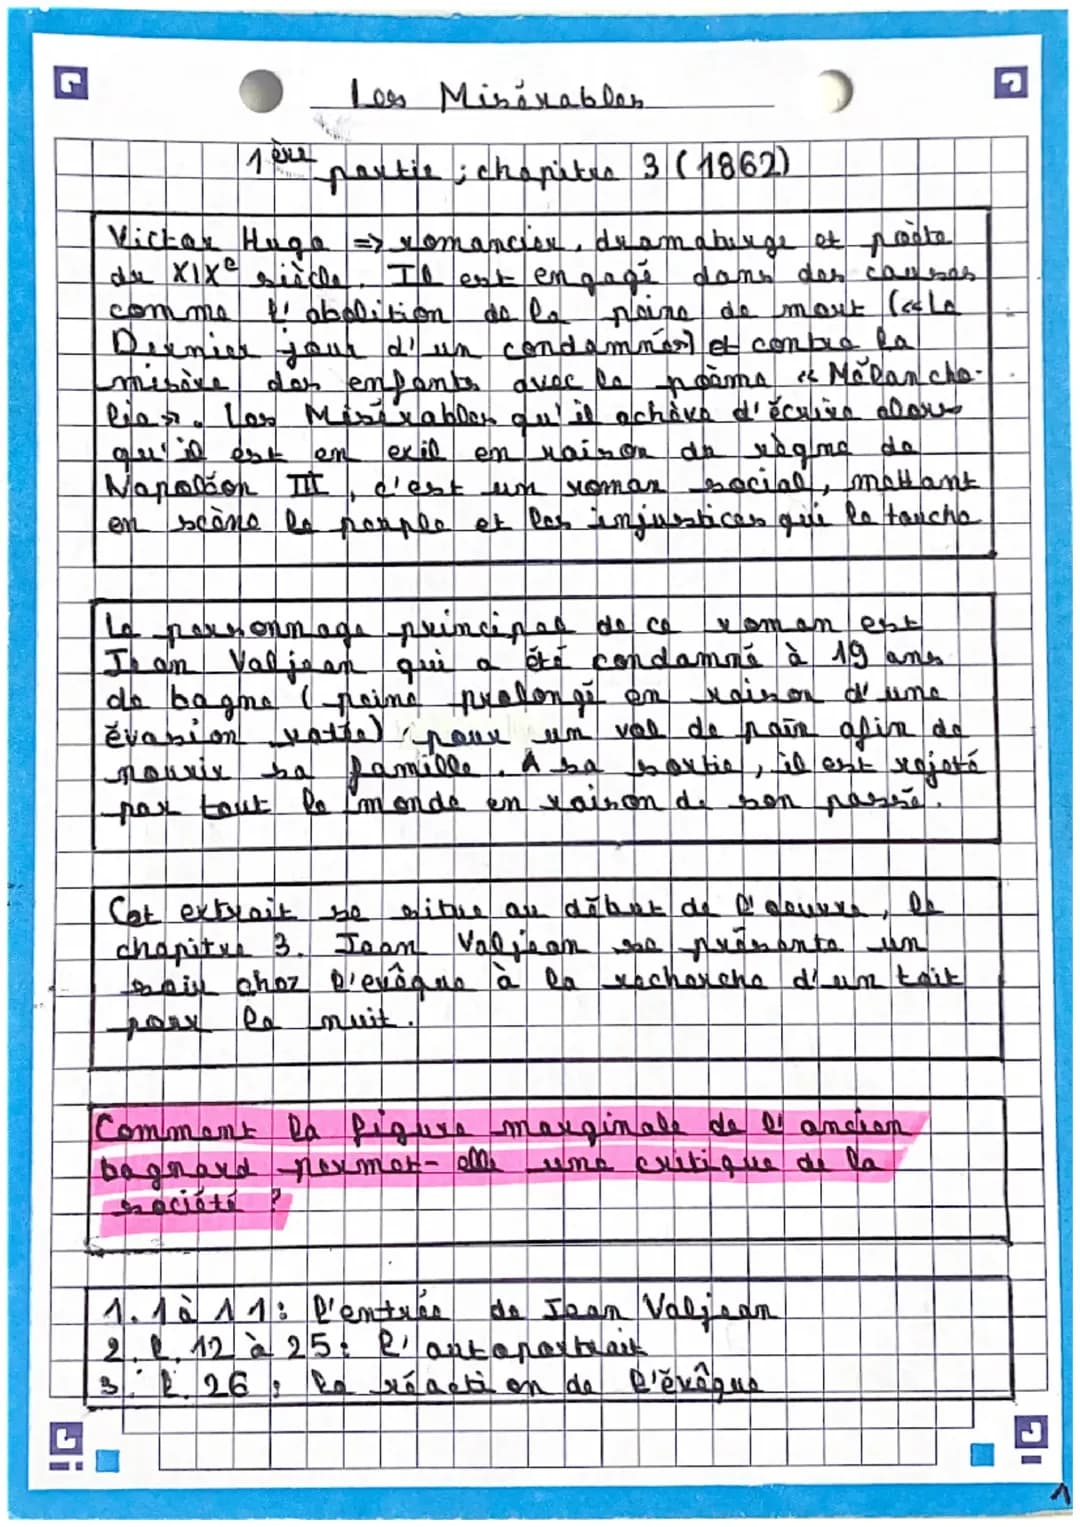 Les Misérables
1ère partie ; chapitre 3 (1862)
Victor Hugo => romancier, dramaturge et poète
du XIXe siècle. Il est engagé dans des causes
comme l'abolition de la peine de mort («Le
Dernier jour d'un condamné») et contre la
misère des enfants avec le poème « Mélancho-
lia». Les Misérables qu'il achève d'écrire alors
qu'il est en exil en raison du règne de
Napoléon III, c'est un roman social, mettant
en scène le peuple et les injustices qui le touche
Le personnage principal de ce roman est
Jean Valjean qui a été condamné à 19 ans
de bagne (peine prolongé en raison d'une
évasion ratée) pour un vol de pain afin de
nourir sa famille. A sa sortie, il est rejeté
par tout le monde en raison de son passé.
Cet extrait se situe au début de l'oeuvre, le
chapitre 3. Jean Valjean se présente un
soir chez l'evêque à la recherche d'un toit
pour la nuit.
Comment la figure marginale de l'ancien
bagnard permet-elle une critique de la
société ?
1. 1 à 11: l'entrée de Jean Valjean
2. l. 12 à 25: l'autoportrait
3. l. 26 : la réaction de l'évêque
1